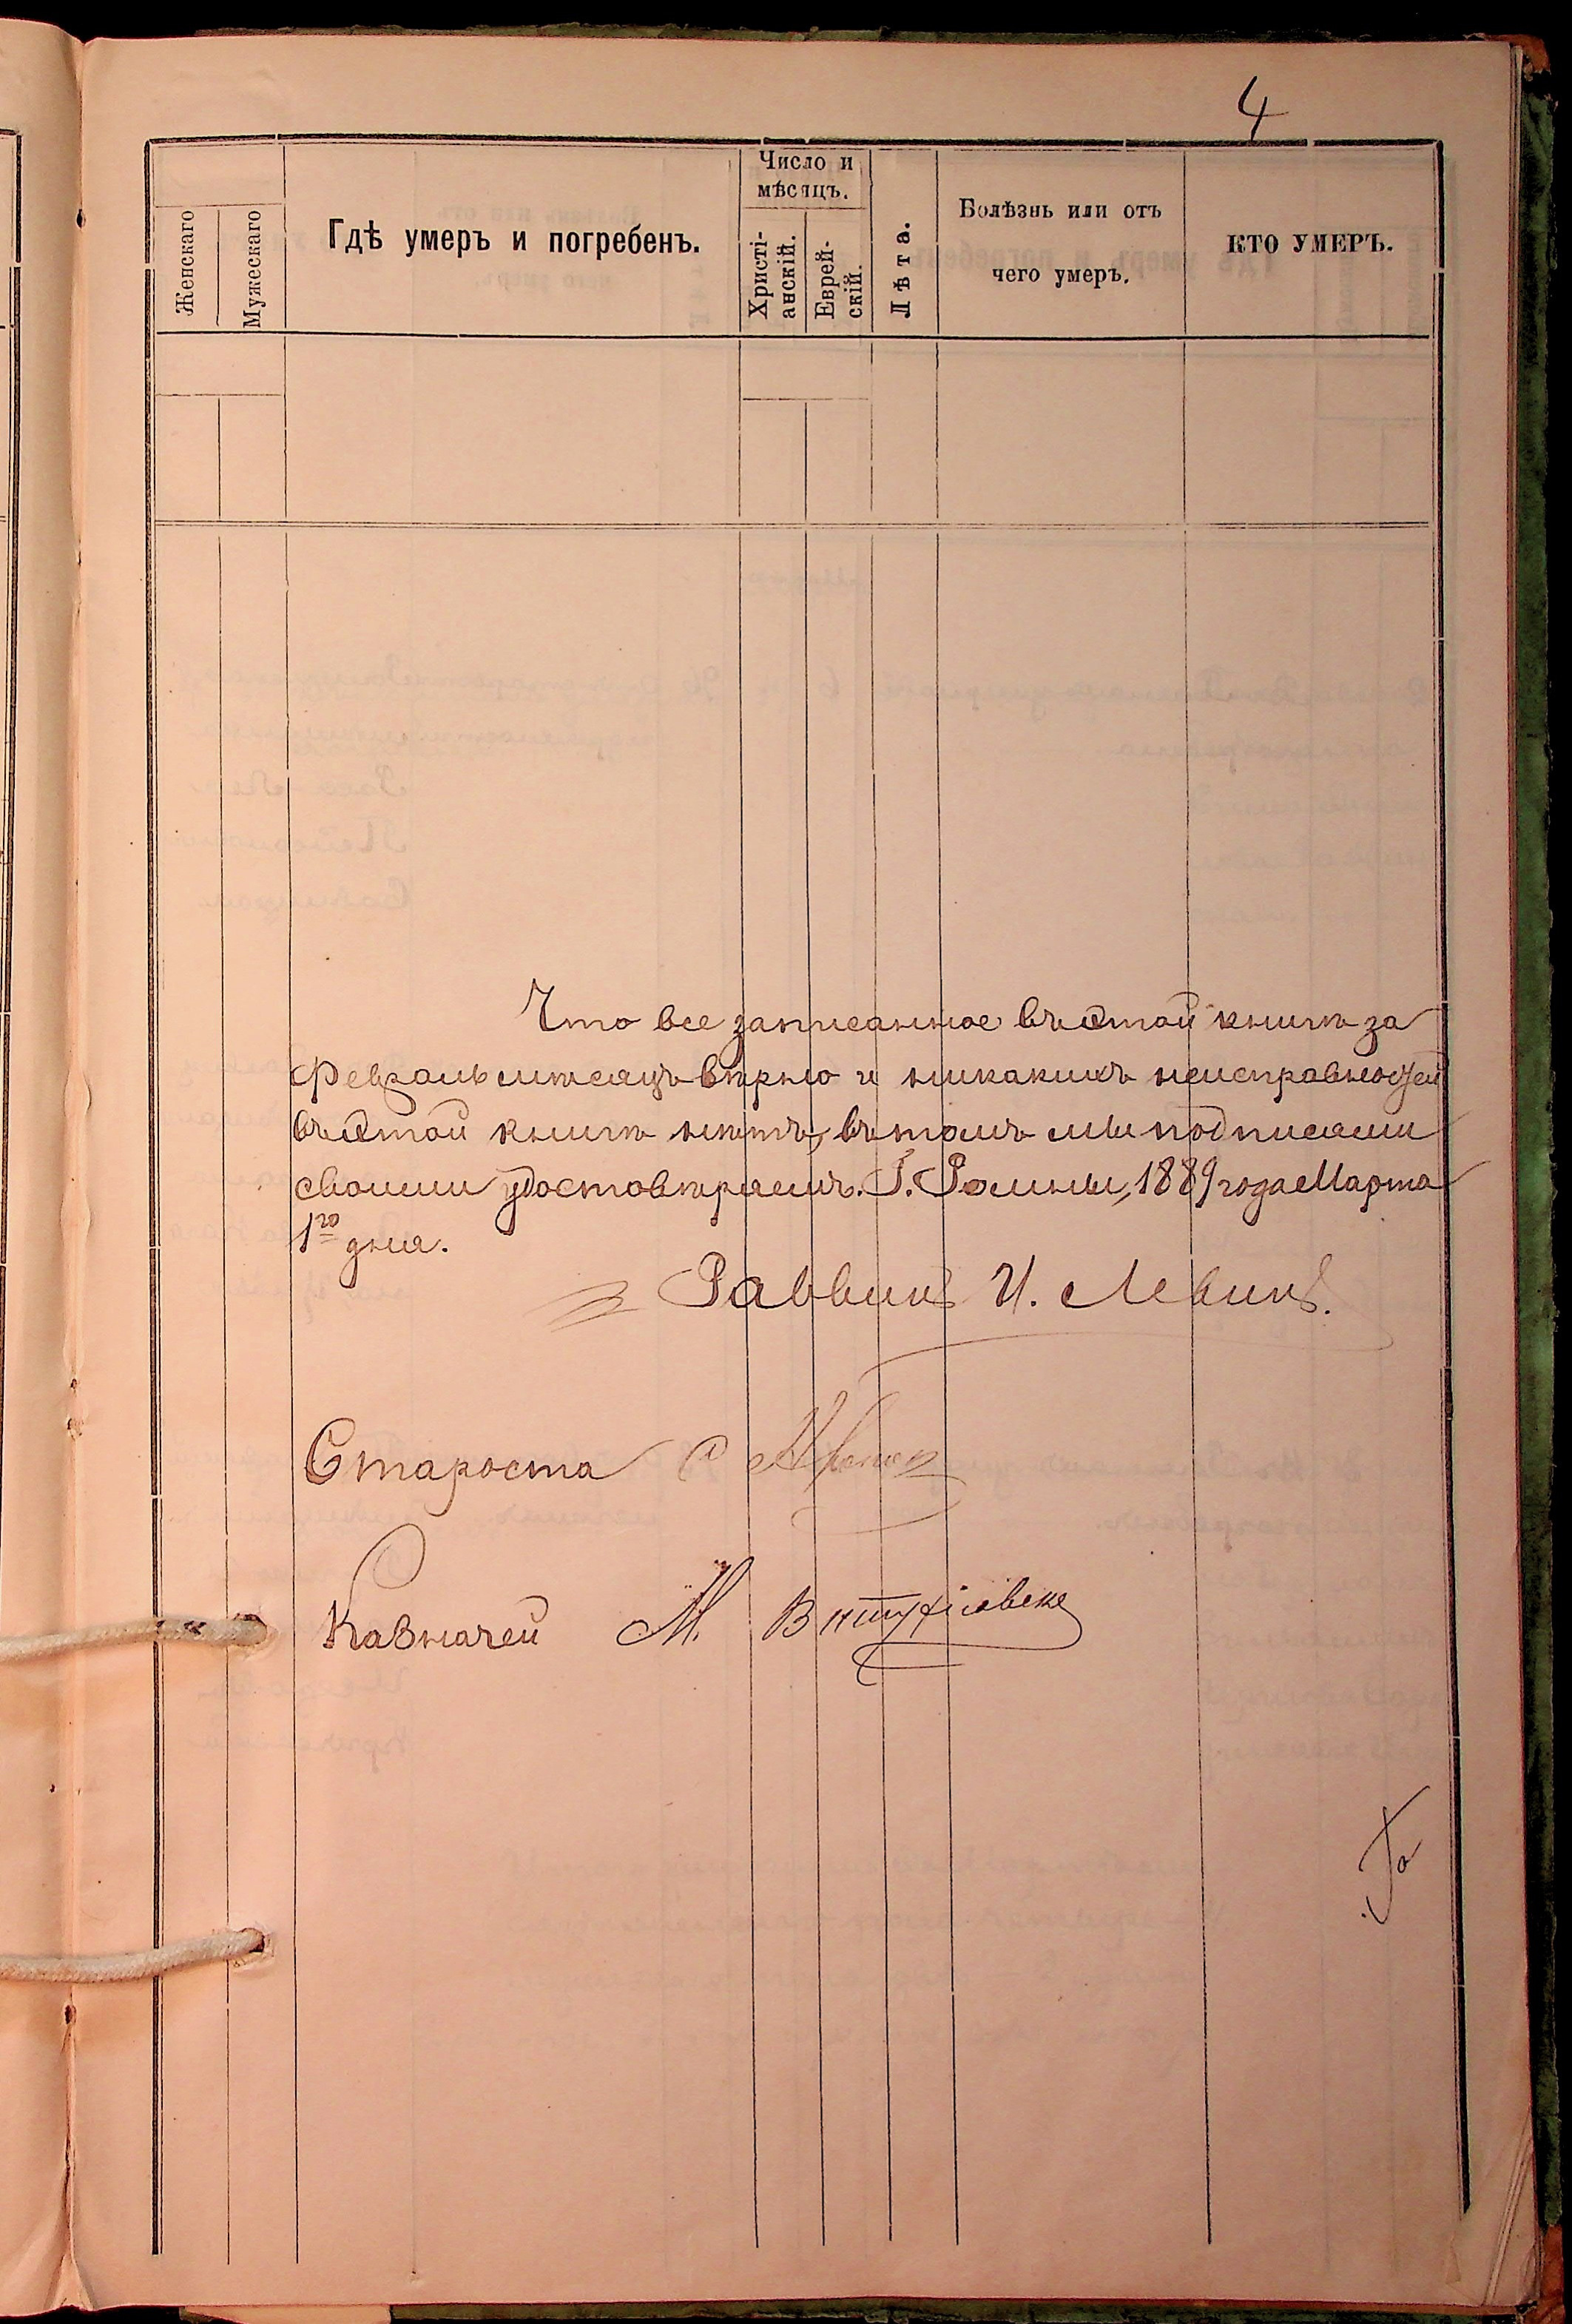 4
Женскаго
Мужескаго
Гдѣ умеръ и погребенъ.
Число и
мѣсяцъ.
Христі-
анскій.
Еврей-
скій.
Лѣта.
Болѣзнь или отъ
чего умеръ.
КТО УМЕРЪ.
Что все записанное въ этой книгѣ за
Февраль мѣсяцъ вѣрно и никакихъ неисправностей
въ этой книгѣ нѣтъ, въ томъ мы подписами
своими удостовѣряемъ. Г. Ромны, 1889 года Марта
1го дня.
Раввинъ И. Левинъ.
Староста
Казначей М.